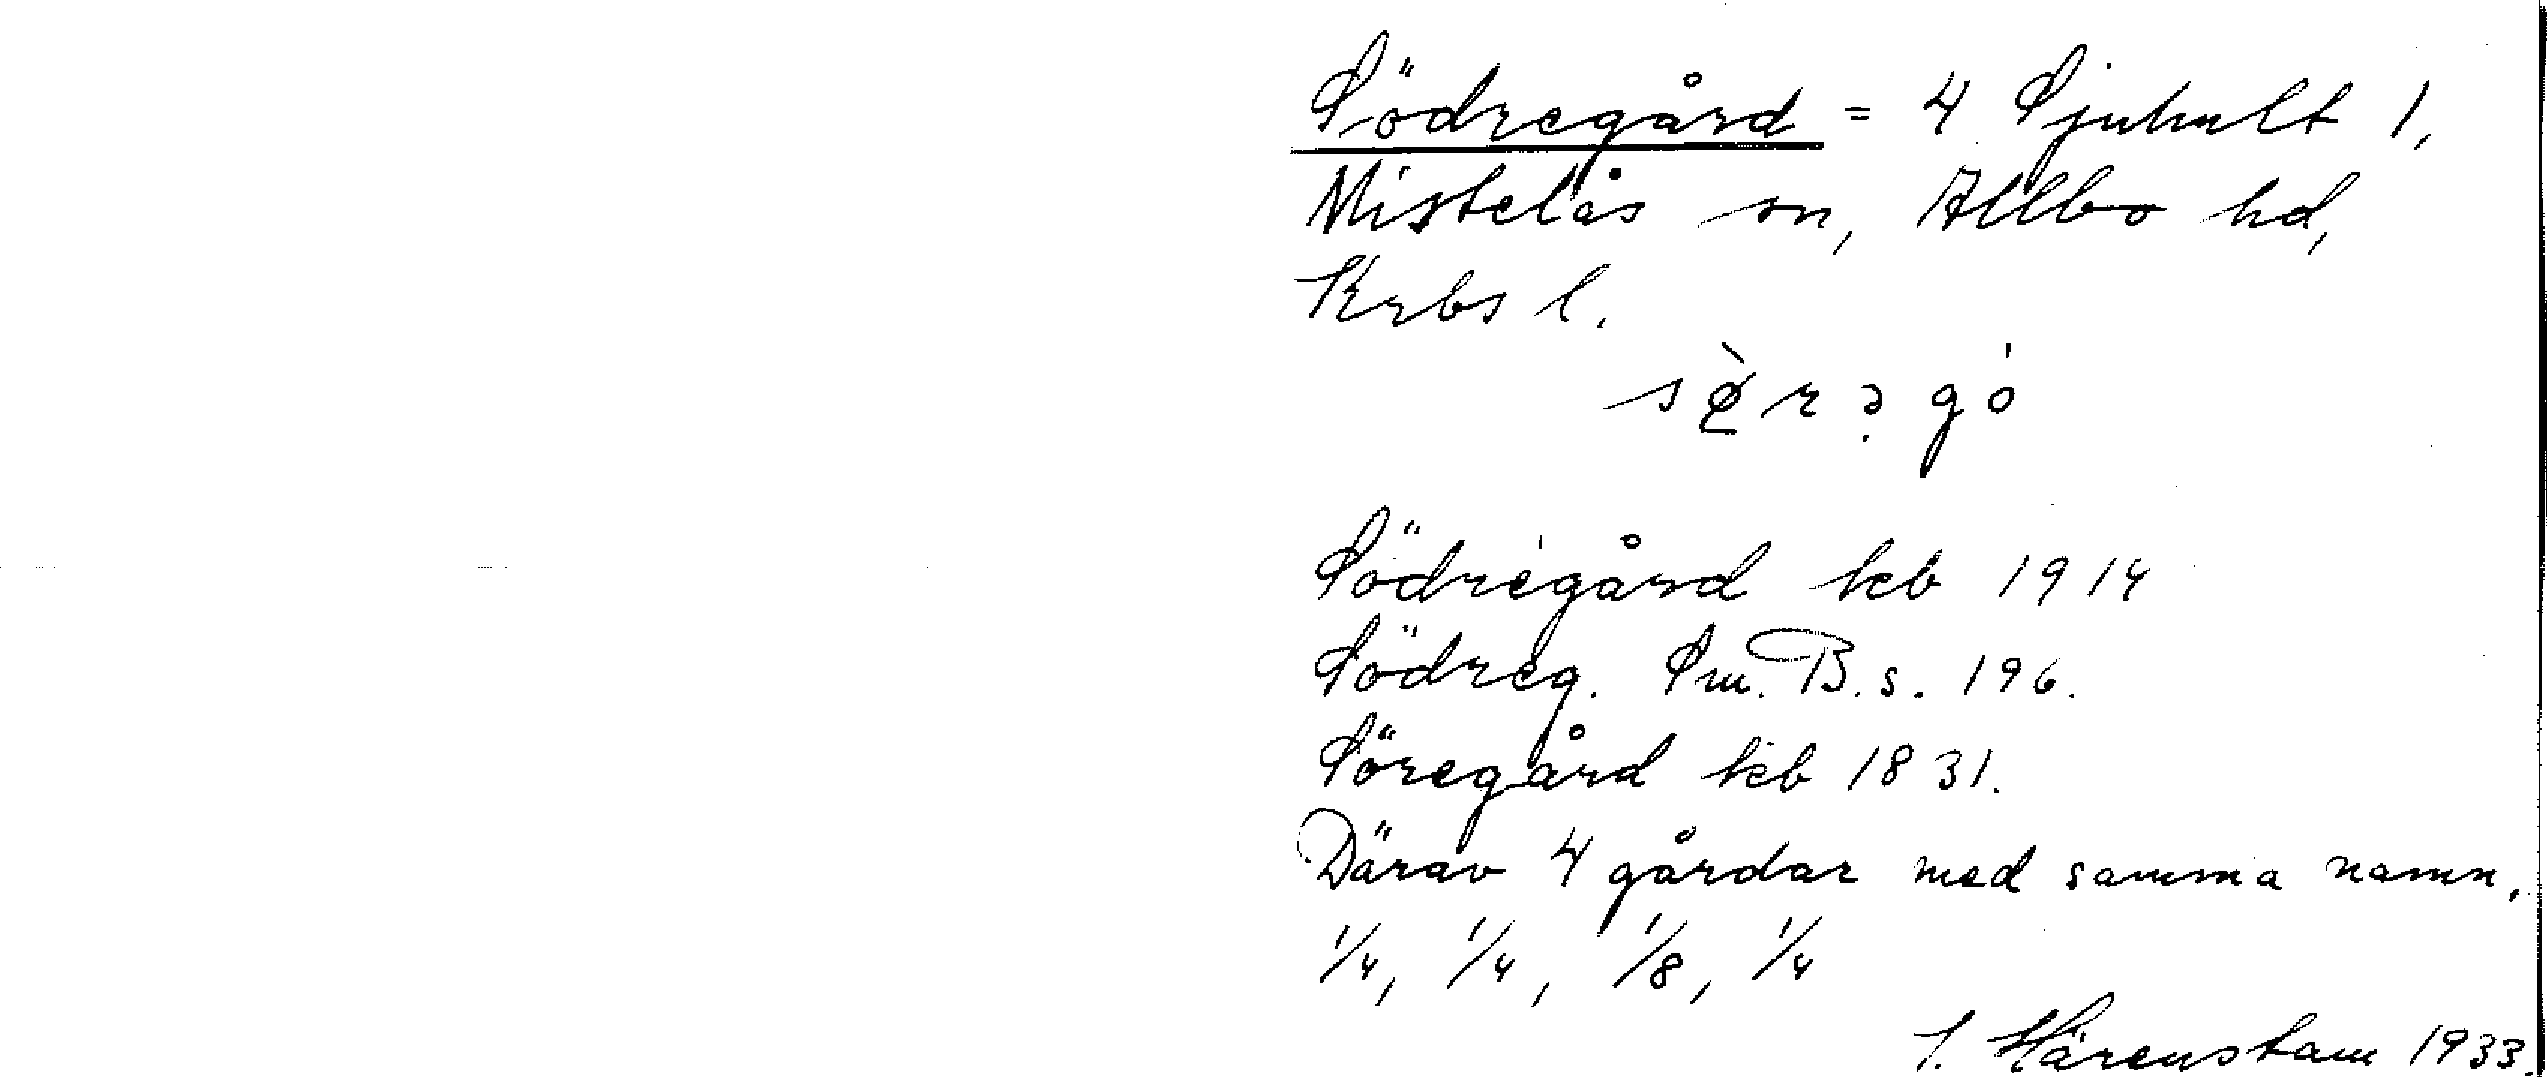 Södregård = 4 Sjuhult 1,
Mistelås sn, Allbo hd,
Krbs l.
sø̱̀rə gó
Södregård kb 1914
Södreg. Sm. B. s. 196.
Söregård kb 1831.
Därav 4 gårdar med samma namn,
1/4, 1/4, 1/8, 1/4
I. Härenstam 1933.